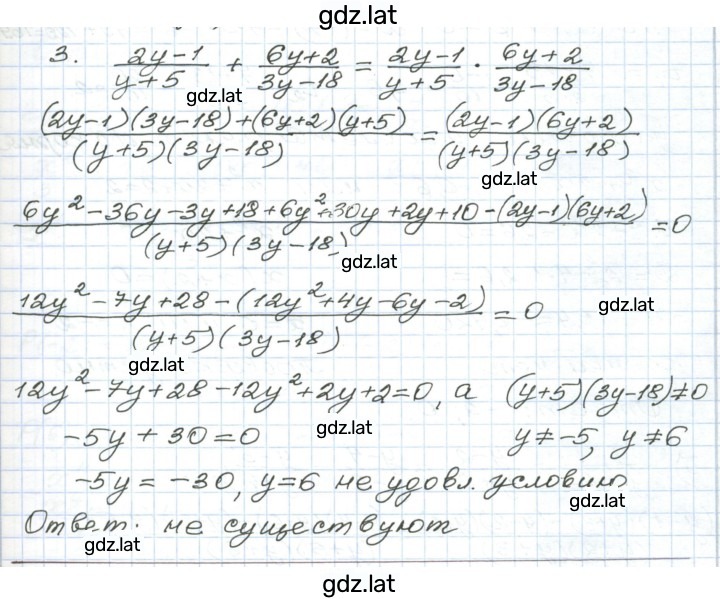 gdz.lat
3. (2y-1)/(y+5) + (6y+2)/(3y-18) = (2y-1)/(y+5) · (6y+2)/(3y-18)
gdz.lat
((2y-1)(3y-18)+(6y+2)(y+5))/((y+5)(3y-18)) = ((2y-1)(6y+2))/((y+5)(3y-18))
gdz.lat
(6y²-36y-3y+18+6y²+30y+2y+10-(2y-1)(6y+2))/((y+5)(3y-18)) = 0
gdz.lat
(12y²-7y+28-(12y²+4y-6y-2))/((y+5)(3y-18)) = 0
gdz.lat
gdz.lat
12y²-7y+28-12y²+2y+2=0, а (y+5)(3y-18)≠0
gdz.lat
-5y+30=0 y≠-5, y≠6
-5y=-30, y=6 не удовл. условию
gdz.lat
Ответ. не существуют
gdz.lat
gdz.lat